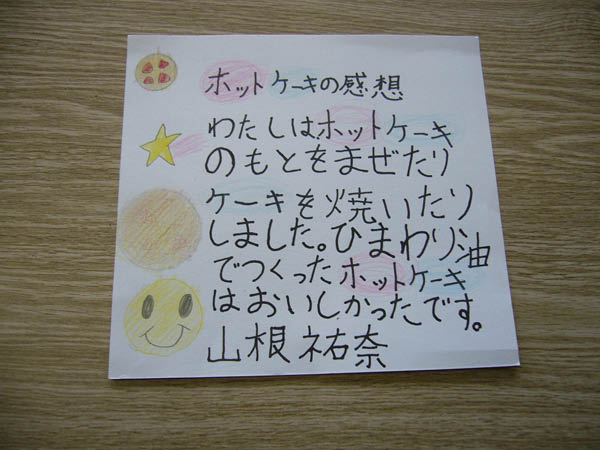 ホットケーキの感想
わたしはホットケーキ
のもとをまぜたり
ケーキを焼いたり
しました。ひまわり油
でつくったホットケーキ
はおいしかったです。
山根祐奈